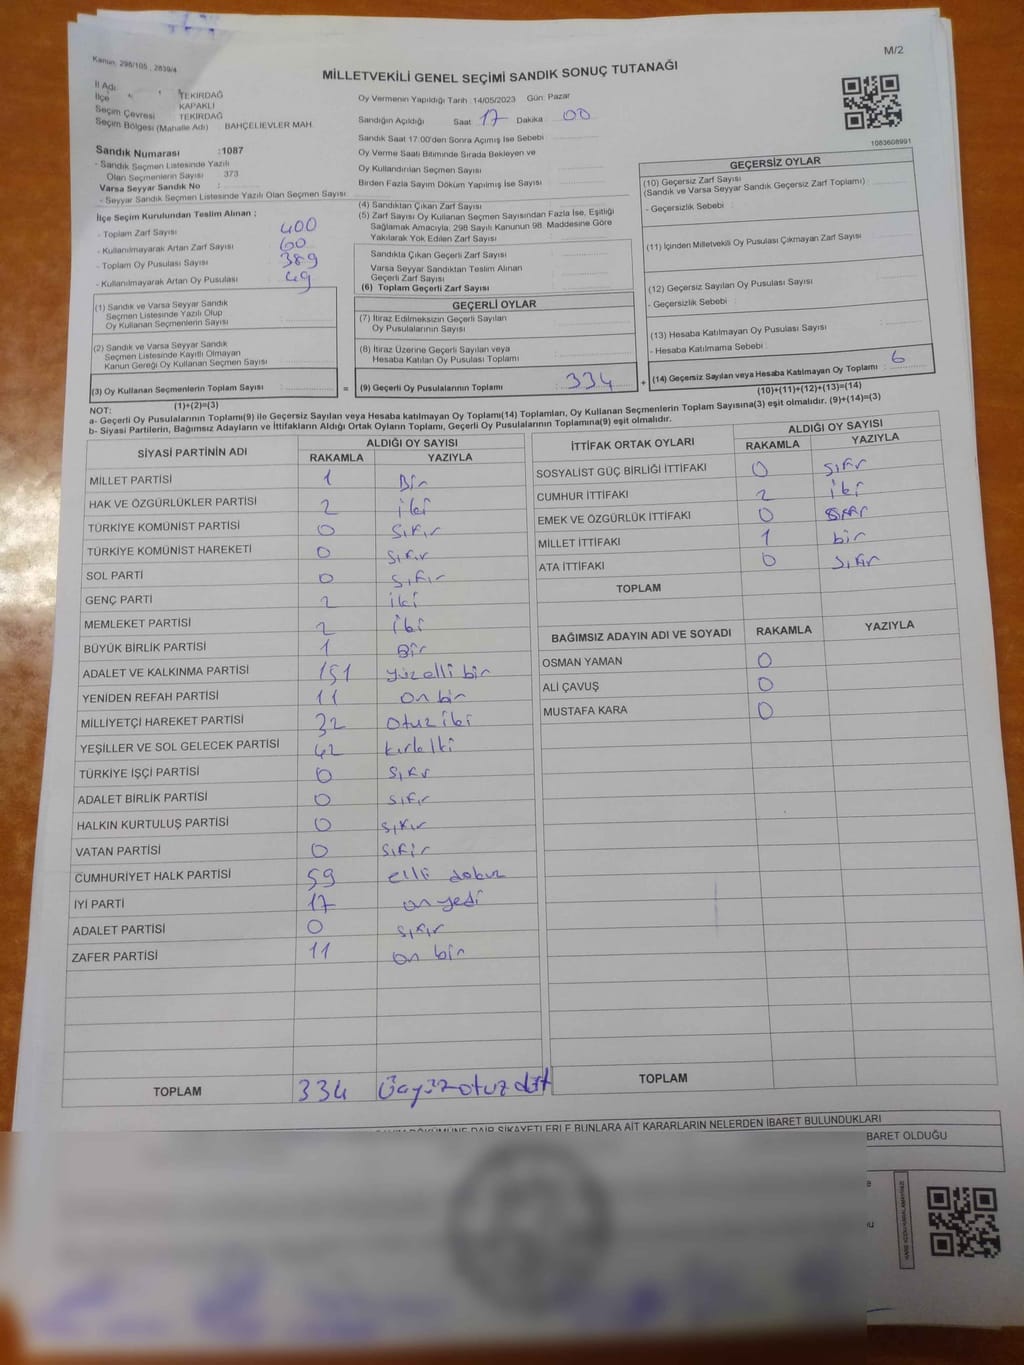 Kanun: 298/105 , 2839/4
M/2
MİLLETVEKİLİ GENEL SEÇİMİ SANDIK SONUÇ TUTANAĞI
İl Adı : TEKİRDAĞ
İlçe : KAPAKLI
Seçim Çevresi TEKİRDAĞ
Seçim Bölgesi (Mahalle Adı) : BAHÇELİEVLER MAH.
Sandık Numarası :1087
- Sandık Seçmen Listesinde Yazılı
Olan Seçmenlerin Sayısı : 373
Varsa Seyyar Sandık No :
- Seyyar Sandık Seçmen Listesinde Yazılı Olan Seçmen Sayısı :
İlçe Seçim Kurulundan Teslim Alınan ;
- Toplam Zarf Sayısı : 400
- Kullanılmayarak Artan Zarf Sayısı : 60
- Toplam Oy Pusulası Sayısı : 389
- Kullanılmayarak Artan Oy Pusulası : 49
(1) Sandık ve Varsa Seyyar Sandık
Seçmen Listesinde Yazılı Olup
Oy Kullanan Seçmenlerin Sayısı :
(2) Sandık ve Varsa Seyyar Sandık
Seçmen Listesinde Kayıtlı Olmayan
Kanun Gereği Oy Kullanan Seçmen Sayısı :
(3) Oy Kullanan Seçmenlerin Toplam Sayısı : =
(1)+(2)=(3)
Oy Vermenin Yapıldığı Tarih :14/05/2023 Gün: Pazar
Sandığın Açıldığı Saat 17 Dakika : 00
Sandık Saat 17:00'den Sonra Açımış İse Sebebi :
Oy Verme Saati Bitiminde Sırada Bekleyen ve
Oy Kullandırılan Seçmen Sayısı :
Birden Fazla Sayım Döküm Yapılmış İse Sayısı :
(4) Sandıktan Çıkan Zarf Sayısı :
(5) Zarf Sayısı Oy Kullanan Seçmen Sayısından Fazla İse, Eşitliği
Sağlamak Amacıyla, 298 Sayılı Kanunun 98. Maddesine Göre
Yakılarak Yok Edilen Zarf Sayısı :
Sandıkta Çıkan Geçerli Zarf Sayısı :
Varsa Seyyar Sandıktan Teslim Alınan
Geçerli Zarf Sayısı :
(6) Toplam Geçerli Zarf Sayısı :
GEÇERLİ OYLAR
(7) İtiraz Edilmeksizin Geçerli Sayılan
Oy Pusulalarının Sayısı :
(8) İtiraz Üzerine Geçerli Sayılan veya
Hesaba Katılan Oy Pusulası Toplamı :
(9) Geçerli Oy Pusulalarının Toplamı : 334 +
1083608991
GEÇERSİZ OYLAR
(10) Geçersiz Zarf Sayısı
(Sandık ve Varsa Seyyar Sandık Geçersiz Zarf Toplamı) :
- Geçersizlik Sebebi :
(11) İçinden Milletvekili Oy Pusulası Çıkmayan Zarf Sayısı :
(12) Geçersiz Sayılan Oy Pusulası Sayısı :
- Geçersizlik Sebebi :
(13) Hesaba Katılmayan Oy Pusulası Sayısı :
- Hesaba Katılmama Sebebi :
(14) Geçersiz Sayılan veya Hesaba Katılmayan Oy Toplamı : 6
(10)+(11)+(12)+(13)=(14)
NOT:
a- Geçerli Oy Pusulalarının Toplamı(9) ile Geçersiz Sayılan veya Hesaba katılmayan Oy Toplamı(14) Toplamları, Oy Kullanan Seçmenlerin Toplam Sayısına(3) eşit olmalıdır. (9)+(14)=(3)
b- Siyasi Partilerin, Bağımsız Adayların ve İttifakların Aldığı Ortak Oyların Toplamı, Geçerli Oy Pusulalarının Toplamına(9) eşit olmalıdır.
SİYASİ PARTİNİN ADI ALDIĞI OY SAYISI
RAKAMLA YAZIYLA
MİLLET PARTİSİ 1 Bir
HAK VE ÖZGÜRLÜKLER PARTİSİ 2 iki
TÜRKİYE KOMÜNİST PARTİSİ 0 sıfır
TÜRKİYE KOMÜNİST HAREKETİ 0 sıfır
SOL PARTİ 0 sıfır
GENÇ PARTİ 2 iki
MEMLEKET PARTİSİ 2 iki
BÜYÜK BİRLİK PARTİSİ 1 Bir
ADALET VE KALKINMA PARTİSİ 151 yüz elli bir
YENİDEN REFAH PARTİSİ 11 on bir
MİLLİYETÇİ HAREKET PARTİSİ 32 otuz iki
YEŞİLLER VE SOL GELECEK PARTİSİ 42 kırk iki
TÜRKİYE İŞÇİ PARTİSİ 0 sıfır
ADALET BİRLİK PARTİSİ 0 sıfır
HALKIN KURTULUŞ PARTİSİ 0 sıfır
VATAN PARTİSİ 0 sıfır
CUMHURİYET HALK PARTİSİ 59 elli dokuz
İYİ PARTİ 17 on yedi
ADALET PARTİSİ 0 sıfır
ZAFER PARTİSİ 11 on bir
TOPLAM 334 Üçyüz otuz dört
İTTİFAK ORTAK OYLARI ALDIĞI OY SAYISI
RAKAMLA YAZIYLA
SOSYALİST GÜÇ BİRLİĞİ İTTİFAKI 0 sıfır
CUMHUR İTTİFAKI 2 iki
EMEK VE ÖZGÜRLÜK İTTİFAKI 0 sıfır
MİLLET İTTİFAKI 1 bir
ATA İTTİFAKI 0 sıfır
TOPLAM
BAĞIMSIZ ADAYIN ADI VE SOYADI RAKAMLA YAZIYLA
OSMAN YAMAN 0
ALİ ÇAVUŞ 0
MUSTAFA KARA 0
TOPLAM
DÖKÜMÜNE DAİR ŞİKAYETLERLE BUNLARA AİT KARARLARIN NELERDEN İBARET BULUNDUKLARI
BARET OLDUĞU